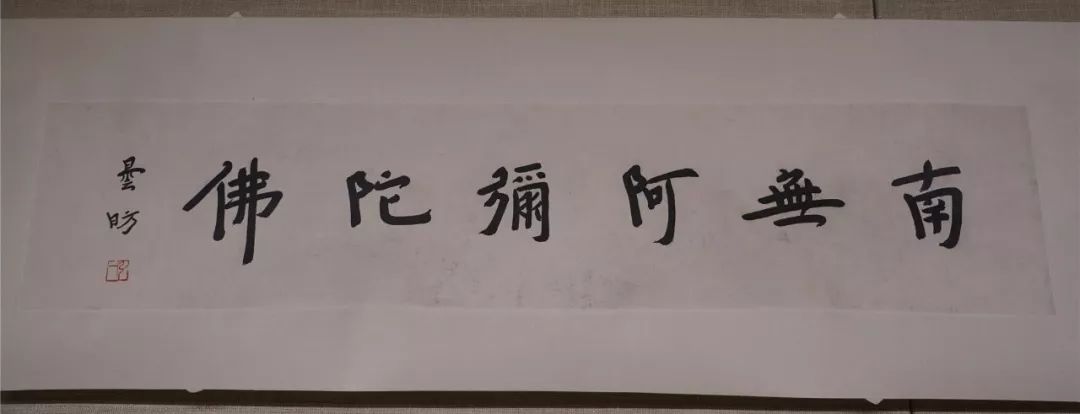 南無阿彌陀佛
曇昉